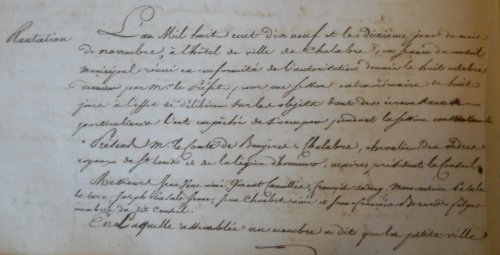 Plantation
L'an Mil huit cent dix neuf et le dixième jour du mois
de novembre, à l'hôtel de ville de Chalabre, en séance du conseil
municipal réuni en conformité de l'autorisation donnée le huit octobre
dernier par Mr. le Préfet, pour une session extraordinaire de huit
jours à l'effet de délibérer sur les objets dont des circonstances
particulières l'ont empêché de s'occuper pendant la session
Présent Mr. le Comte de Bruyères Chalabre, chevalier des ordres
royaux de St Louis et de la légion d'honneur, maire, président le Conseil
Messieurs Jean ainé, François Mons Lasale
Joseph Lasale jeune, Jean Chaubet ainé et Jean François
membres du dit conseil.
En Laquelle assemblée un membre a dit que la petite ville